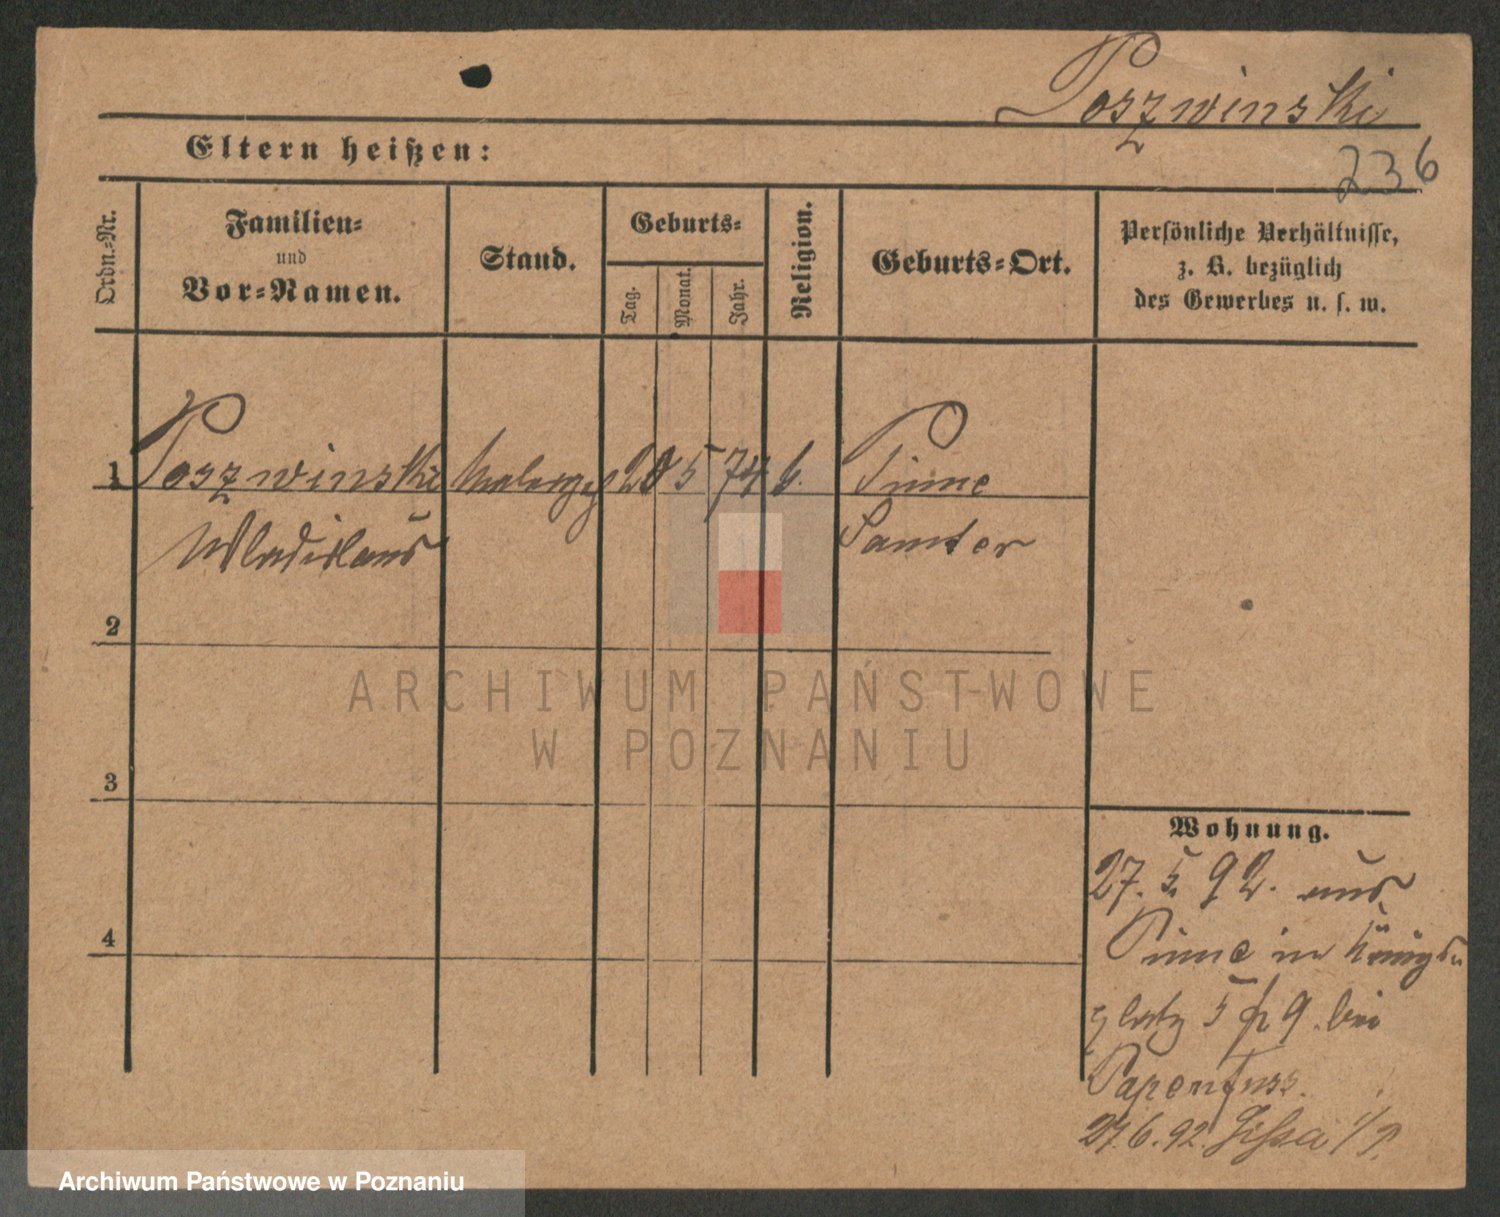 Poszwinski
236
Eltern heißen:
Ordn.-Nr.
Familien-
und
Vor-Namen.
Stand.
Geburts-
Tag.
Monat.
Jahr.
Religion.
Geburts-Ort.
Persönliche Verhältnisse,
z. B. bezüglich
des Gewerbes u. s. w.
1 Poszwinski Malergeh 20 5 74 k. Pinne
Wladislaus Samter
2
3
4
Wohnung.
27. 5. 92. aus
Pinne in Königs-
platz 5 9. bei
Papenfuss.
27.6.92. Lissa i/P.
ARCHIWUM PAŃSTWOWE
W POZNANIU
Archiwum Państwowe w Poznaniu